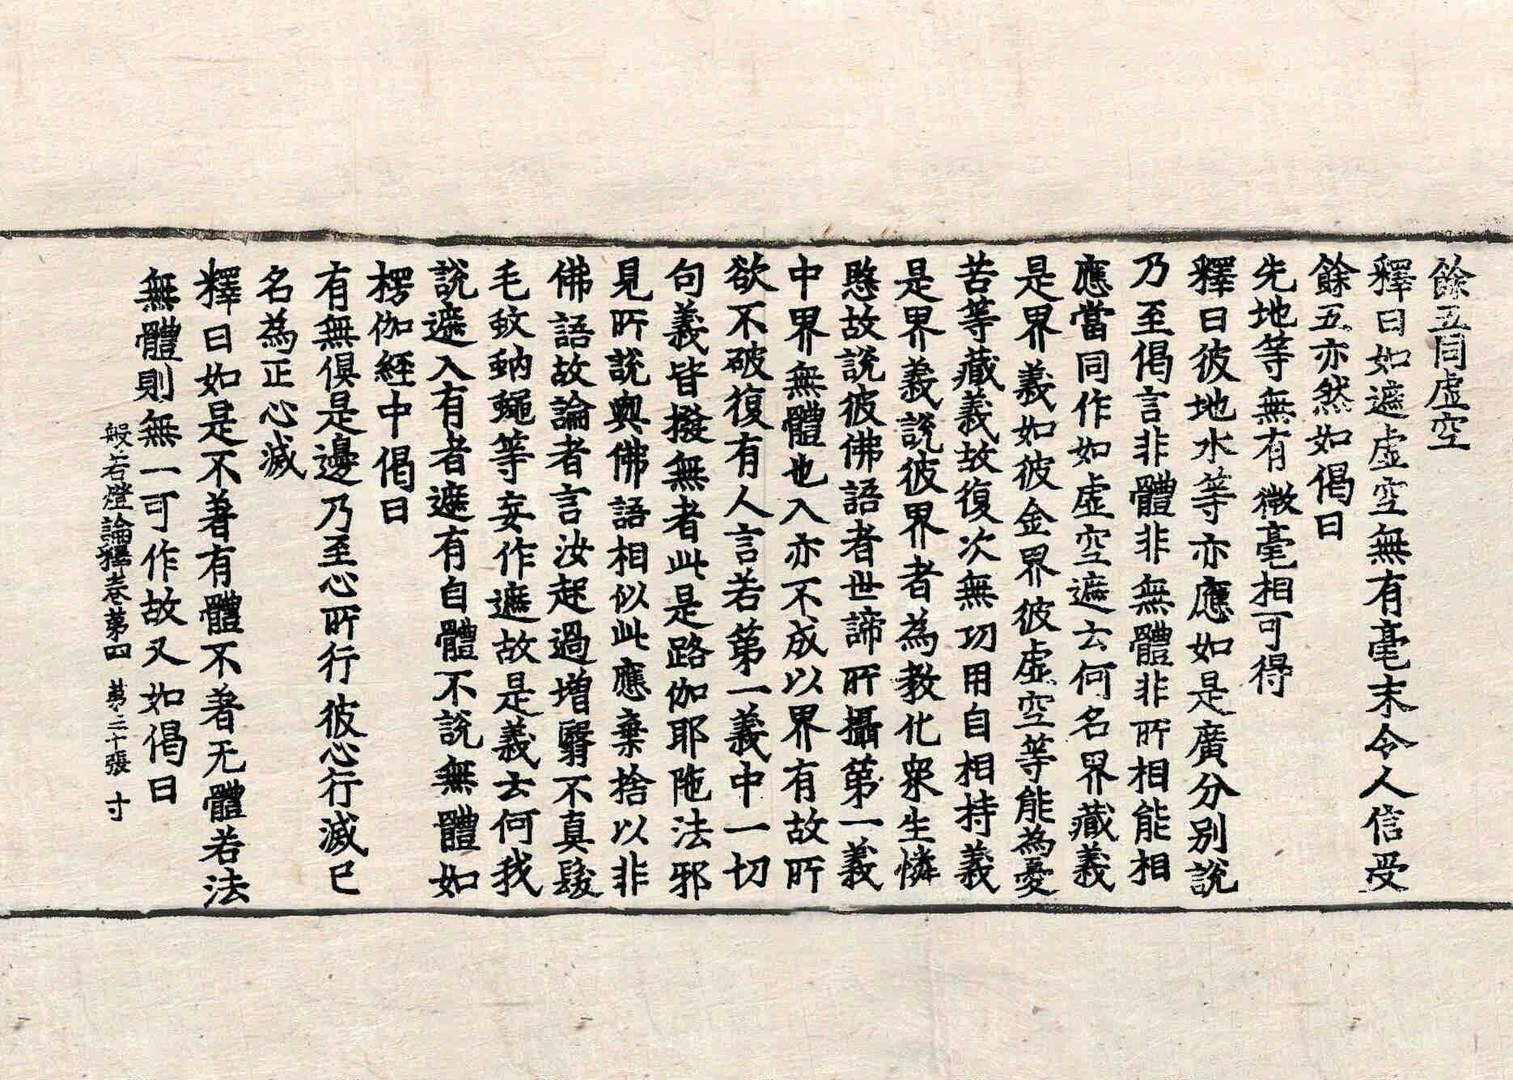 餘五同虛空
釋曰如遮虛空無有毫末令人信受
餘五亦然如偈曰
先地等無有微毫相可得
釋曰彼地水等亦應如是廣分別說
乃至偈言非體非無體非所相能相
應當同作如虛空遮去何名界藏義
是界義如彼金界彼虛空等能為憂
苦等藏義故復次無功用自相持義
是界義說彼界者為教化衆生憐
愍故說彼佛語者世諦所攝第一義
中界無體也入亦不成以界有故所
欲不破復有人言若第一義中一切
句義皆撥無者此是路伽耶陁法邪
見所說與佛語相似此應棄捨以非
佛語故論者言汝起過增翳不真髮
毛蚊蚋蠅等妄作遮故是義去何我
說遮入有者遮有自體不說無體如
楞伽經中偈曰
有無俱是邊乃至心所行彼心行滅已
名為正心滅
釋曰如是不著有體不著无體若法
無體則無一可作故又如偈曰
般若燈論釋卷第四 苐二十張 寸